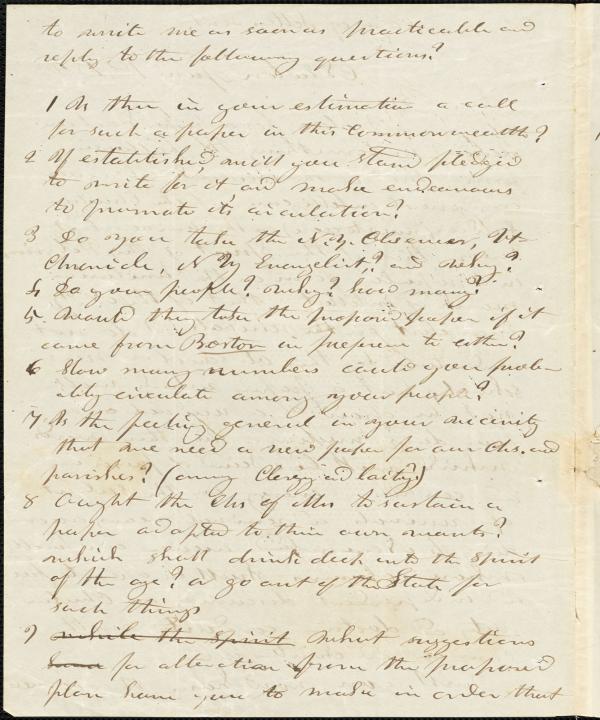 to write me as soon as practicable and
reply to the following questions?
1 Is there in your estimation a call
for such a paper in this Commonwealth?
2 If established, will you stand pledged
to write for it and make endeavours
to promote its circulation?
3 Do you take the N.Y. Observer, Vt
Chronicle, N Y Evangelist? and why?
4 Do your people? why? how many?
5. Would they take the proposed paper if it
came from Boston in preference to either?
6 How many numbers could you prob-
ably circulate among your people?
7 Is the feeling general in your vicinity
that we need a new paper for our Chs. and
parishes? (among Clergy and laity?)
8 Ought the Chs of Mss to sustain a
paper adapted to their own wants?
which shall drink deep into the spirit
of the age? or go out of the State for
such things
9 while the spirit what suggestions
for alteration from the proposed
plan have you to make in order that